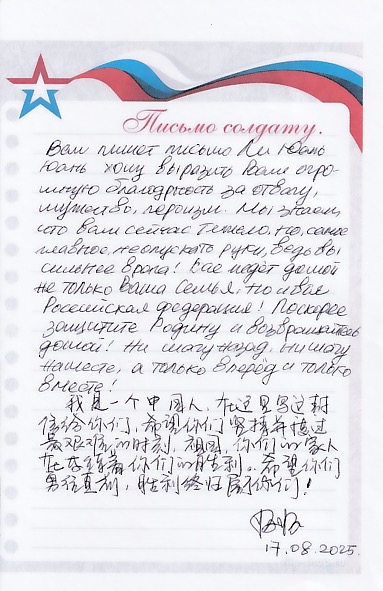 Письмо солдату.
Вам пишет письмо Ли Юань
Юань хочу выразить Вам огро-
мную благодарность за отвагу,
мужество, героизм. Мы знаем
что вам сейчас тяжело, но, самое
главное, не опускать руки, ведь вы
сильнее врага! Вас ждёт домой
не только Ваша семья, но и вся
Российская федерация! Поскорее
защитите Родину и возвращайтесь
домой! Ни шагу назад, ни шагу
на месте, а только вперёд и только
вместе!
我是一个中国人, 在这里写这封
信给你们, 希望你们坚持并挺过
最艰难的时刻, 祖国, 你们的家人
在等着你们的胜利。希望你们
勇往直前, 胜利终归属你们!
17.08.2025.